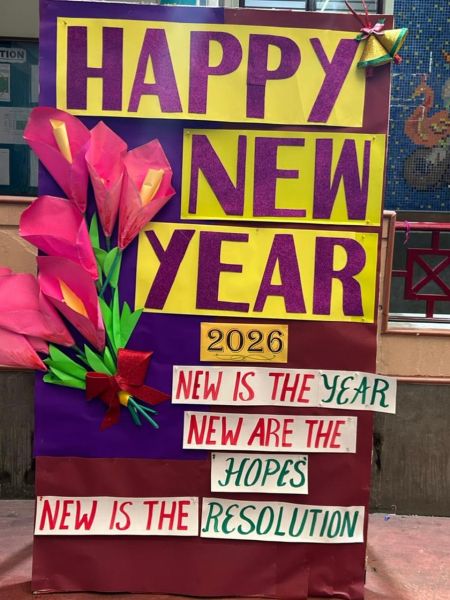 HAPPY
NEW
YEAR
2026
NEW IS THE YEAR
NEW ARE THE
HOPES
NEW IS THE RESOLUTION